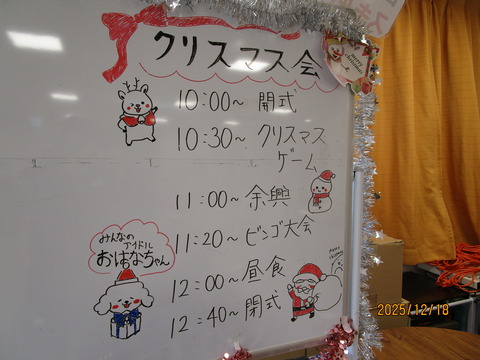 クリスマス会
10:00~ 開式
10:30~ クリスマス
ゲーム
11:00~ 余興
11:20~ ビンゴ大会
12:00~ 昼食
12:40~ 閉式
みんなの
アイドル
おはなちゃん
Merry
christmas
2025/12/18